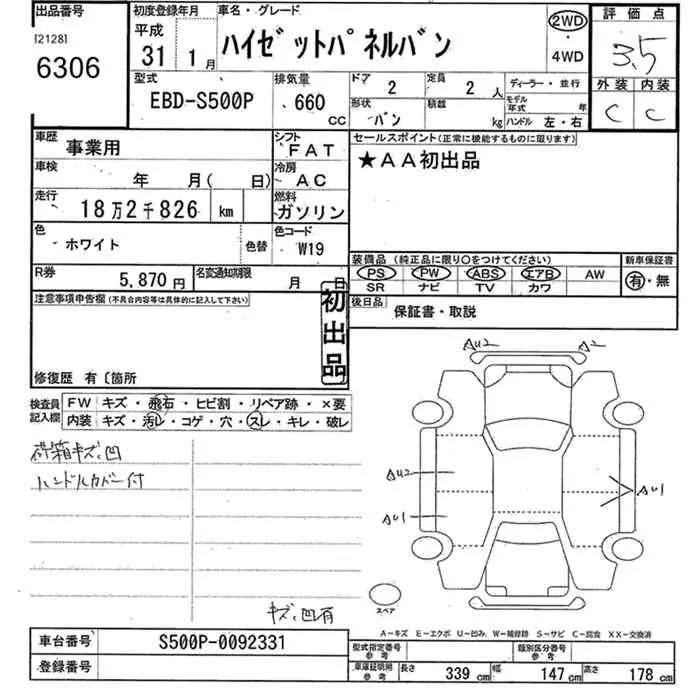 出品番号
[2128]
6306
初度登録年月
平成
31 1月
車名・グレード
ハイゼットパネルバン
2WD
・
4WD
評価点
3.5
外装 内装
C C
型式
EBD-S500P
排気量
660 CC
ドア 2
定員 2 人
形状 バン
積載 kg
ディーラー・並行
モデル年式 年
ハンドル 左・右
車歴 事業用
シフト FAT
車検 年 月( 日)
冷房 AC
走行 18万2千826 km
燃料 ガソリン
色 ホワイト 色替
色コード W19
R券 5,870円
名変通知期限 月 日
セールスポイント(正常に機能するものに限ります)
★AA初出品
装備品(純正品に限り○をつけてください)
PS PW ABS エアB AW
SR ナビ TV カワ
新車保証書
有・無
後日品 保証書・取説
注意事項申告欄(不具合内容等は具体的に記入して下さい)
初出品
修復歴 有〔箇所
検査員記入欄
FW キズ・飛石・ヒビ割・リペア跡・×要
内装 キズ・汚レ・コゲ・穴・スレ・キレ・破レ
荷箱キズ、凹
ハンドルカバー付
キズ、凹有
AU2 A2
AU2
AU1
AU1
スペア
A−キズ E−エクボ U−凹み W−補修跡 S−サビ C−腐食 XX−交換済
車台番号 S500P-0092331
登録番号
型式指定番号参考
類別区分番号参考
車庫証明用参考
長さ 339 cm
幅 147 cm
高さ 178 cm